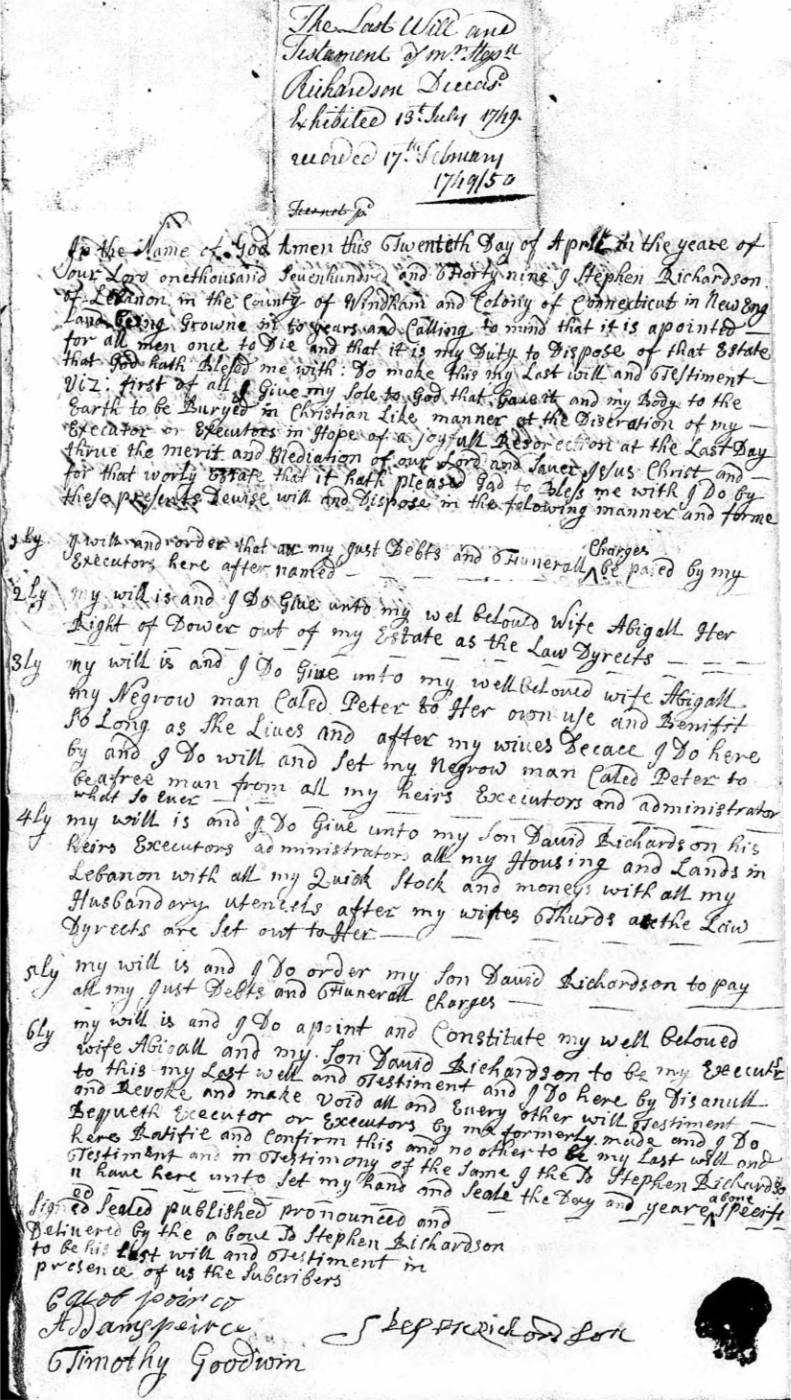 The Last Will and
Testament of mr. Stepn
Richardson Deceasd
Exhibited 13t July 1749.
recorded 17th February
1749/50
In the Name of God Amen this Twenteth Day of Aprill in the yeare of
our Lord onethousand Sevenhundred and Forty nine I Stephen Richardson
of Lebanon in the County of Windham and Colony of Connecticut in New Eng
Land being Growne in to years and Calling to mind that it is apointed
for all men once to Die and that it is my Duty to Dispose of that Estate
that God hath Blesed me with: Do make this my Last will and Testiment
Viz: first of all I Give my Sole to God that Gave it and my Body to the
Earth to be Buryed in Christian Like manner at the Discration of my
Executor or Executors in Hope of a Joyfull Resorection at the Last Day
thrue the merit and Mediation of our Lord and Saver Jesus Christ and
for that worly Estate that it hath pleased God to Bless me with I Do by
these presents Devise will and Dispose in the folowing manner and forme
1ly I will and order that all my Just Debts and Funerall Charges be paied by my
Executors here after named
2ly my will is and I Do Give unto my wel beloved Wife Abigall Her
Right of Dower out of my Estate as the Law Dyrects
3ly my will is and I Do Give unto my wellbeloved wife Abigall
my Negrow man Caled Peter to Her own use and Benifit
So Long as She Lives and after my wives Decace I Do here
by and I Do will and Set my Negrow man Caled Peter to
be a free man from all my heirs Executors and administrator
what So Ever
4ly my will is and I Do Give unto my Son David Richardson his
heirs Executors administrators all my Housing and Lands in
Lebanon with all my Quick Stock and moneys with all my
Husbandary utencels after my wifes Thurds as the Law
Dyrects are Set out to Her
5ly my will is and I Do order my Son David Richardson to pay
all my Just Debts and Funerall Charges
6ly my will is and I Do apoint and Constitute my well beloved
wife Abigall and my Son David Richardson to be my Executr
to this my Last well and Testiment and I Do here by Disanull
and Revoke and make void all and Every other will Testiment
Bequeth Executor or Executors by me formerly made and I Do
here Ratifie and Confirm this and no other to be my Last will and
Testiment and in Testimony of the Same I the Sd Stephen Richardso
n have here unto Set my hand and Seale the Day and yeare above Specifi
ed
Signed Sealed published pronounced and
Delivered by the above Sd Stephen Richardson
to be his Last will and Testiment in
presence of us the Subcribers
peirce
Addams peirce
Timothy Goodwin
Stephen Richardson